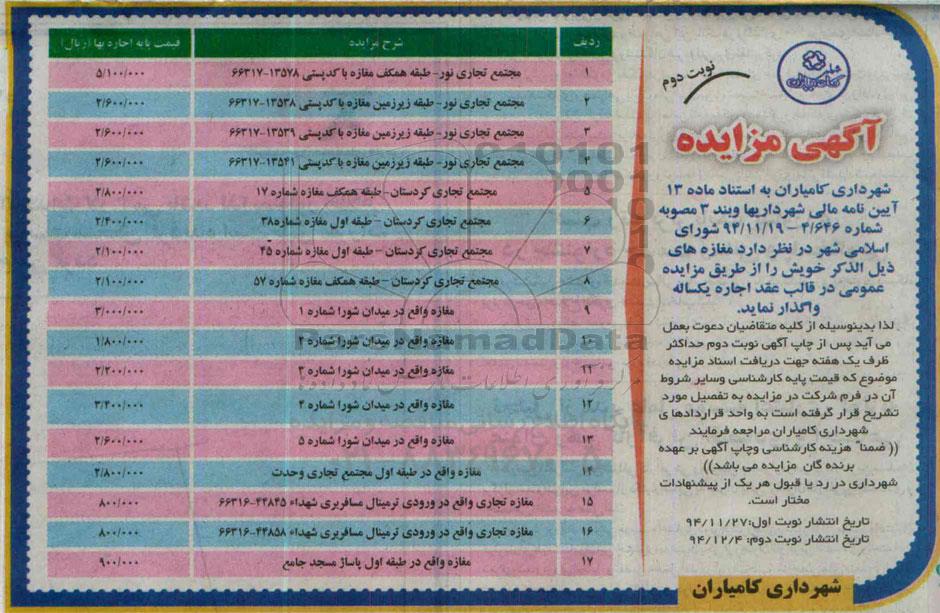 نوبت دوم
آگهی مزایده
شهرداری کامیاران به استناد ماده ۱۳
آیین نامه مالی شهرداریها وبند ۳ مصوبه
شماره ۴/۶۴۶ – ۹۴/۱۱/۱۹ شورای
اسلامی شهر در نظر دارد مغازه های
ذیل الذکر خویش را از طریق مزایده
عمومی در قالب عقد اجاره یکساله
واگذار نماید.
لذا بدینوسیله از کلیه متقاضیان دعوت بعمل
می آید پس از چاپ آگهی نوبت دوم حداکثر
ظرف یک هفته جهت دریافت اسناد مزایده
موضوع که قیمت پایه کارشناسی وسایر شروط
آن در فرم شرکت در مزایده به تفصیل مورد
تشریح قرار گرفته است به واحد قراردادها ی
شهرداری کامیاران مراجعه فرمایند
(( ضمنا" هزینه کارشناسی وچاپ آگهی بر عهده
برنده گان مزایده می باشد))
شهرداری در رد یا قبول هر یک از پیشنهادات
مختار است.
تاریخ انتشار نوبت اول: ۹۴/۱۱/۲۷
تاریخ انتشار نوبت دوم: ۹۴/۱۲/۴
شهرداری کامیاران
ردیف شرح مزایده قیمت پایه اجاره بها (ریال)
۱ مجتمع تجاری نور- طبقه همکف مغازه با کدپستی ۱۳۵۷۸-۶۶۳۱۷ ۵/۱۰۰/۰۰۰
۲ مجتمع تجاری نور- طبقه زیرزمین مغازه با کدپستی ۱۳۵۳۸-۶۶۳۱۷ ۲/۶۰۰/۰۰۰
۳ مجتمع تجاری نور- طبقه زیرزمین مغازه با کدپستی ۱۳۵۳۹-۶۶۳۱۷ ۲/۶۰۰/۰۰۰
۴ مجتمع تجاری نور- طبقه زیرزمین مغازه با کدپستی ۱۳۵۴۱-۶۶۳۱۷ ۲/۶۰۰/۰۰۰
۵ مجتمع تجاری کردستان -طبقه همکف مغازه شماره ۱۷ ۲/۸۰۰/۰۰۰
۶ مجتمع تجاری کردستان – طبقه اول مغازه شماره۳۸ ۲/۴۰۰/۰۰۰
۷ مجتمع تجاری کردستان – طبقه اول مغازه شماره ۴۵ ۲/۱۰۰/۰۰۰
۸ مجتمع تجاری کردستان – طبقه همکف مغازه شماره ۵۷ ۲/۱۰۰/۰۰۰
۹ مغازه واقع در میدان شورا شماره ۱ ۳/۰۰۰/۰۰۰
۱۰ مغازه واقع در میدان شورا شماره ۲ ۱/۸۰۰/۰۰۰
۱۱ مغازه واقع در میدان شورا شماره ۳ ۲/۲۰۰/۰۰۰
۱۲ مغازه واقع در میدان شورا شماره ۴ ۳/۴۰۰/۰۰۰
۱۳ مغازه واقع در میدان شورا شماره ۵ ۲/۶۰۰/۰۰۰
۱۴ مغازه واقع در طبقه اول مجتمع تجاری وحدت ۲/۸۰۰/۰۰۰
۱۵ مغازه تجاری واقع در ورودی ترمینال مسافربری شهداء ۴۴۸۴۵-۶۶۳۱۶ ۸۰۰/۰۰۰
۱۶ مغازه تجاری واقع در ورودی ترمینال مسافربری شهداء ۴۴۸۵۸-۶۶۳۱۶ ۸۰۰/۰۰۰
۱۷ مغازه واقع در طبقه اول پاساژ مسجد جامع ۹۰۰/۰۰۰